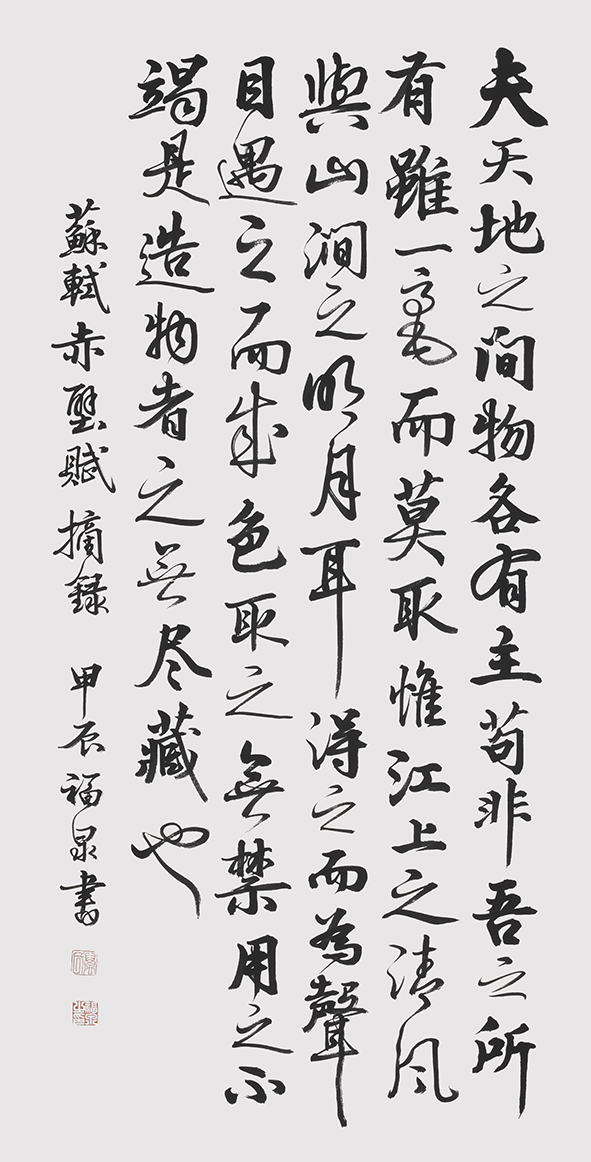 夫天地之间物各有主苟非吾之所
有雖一毫而莫取惟江上之清风
與山涧之明月耳得之而為聲
目遇之而成色取之無禁用之不
竭是造物者之無尽藏也
蘇軾赤壁賦摘録 甲辰福泉書